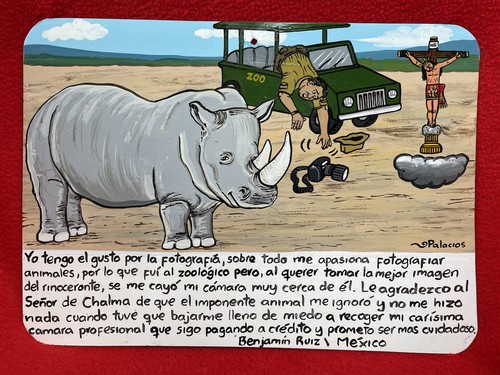 ZOO
Palacios
Yo tengo el gusto por la fotografía, sobre todo me apasiona fotografiar
animales, por lo que fuí al zoológico pero, al querer tomar la mejor imagen
del rinoceronte, se me cayó mi cámara muy cerca de él. Le agradezco al
Señor de Chalma de que el imponente animal me ignoró y no me hizo
nada cuando tuve que bajarme lleno de miedo a recoger mi carísima
camara profesional que sigo pagando a crédito y prometo ser mas cuidadoso.
Benjamín Ruiz \ México